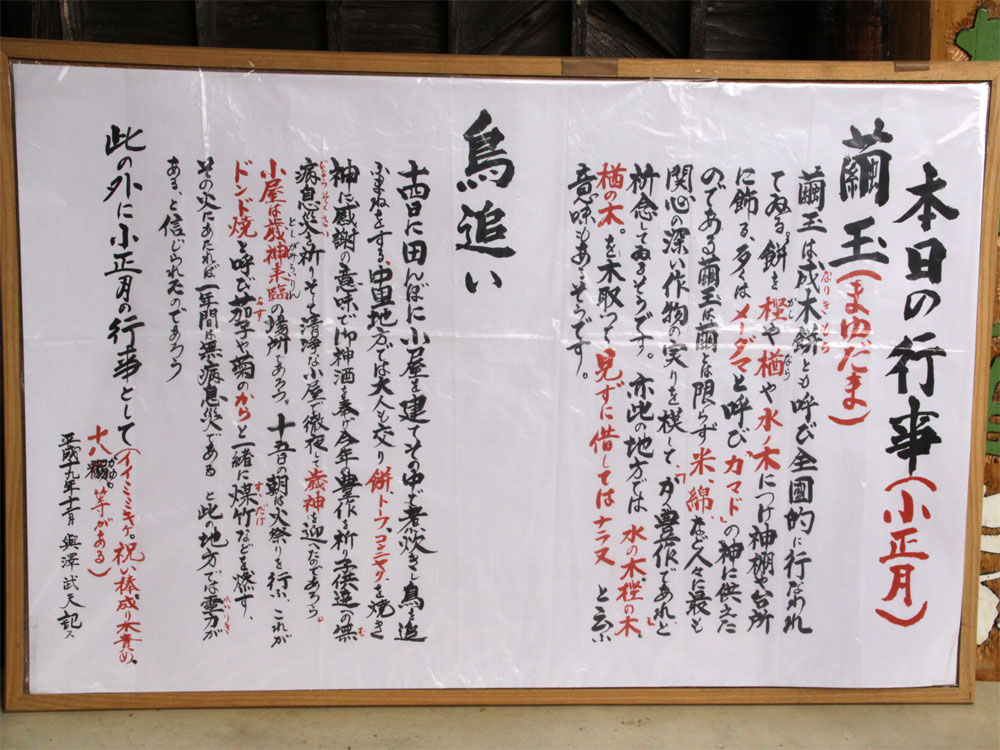 本日の行事(小正月)
繭玉(まゆだま)
繭玉は成木餅とも呼び全国的に行なわれ
てゐる。餅を樫や楢や水ノ木につけ神棚や台所
に飾る、多くはメーダマと呼び「カマド」の神に供えた
のである繭玉は繭とは限らず米、綿、など人々に最も
関心の深い作物の実りを模して、「かく豊作であれ」と
祈念してゐるそうです。亦此の地方では水の木、樫の木、
楢の木。を木取って見ずに借してはナラヌと云ふ
意味もあるそうです。
鳥追い
十四日に田んぼに小屋を建てその中で煮炊きし鳥を追
ふまねをする、中里地方では大人も交り餅、トーフ、コンニャクを焼き
神に感謝の意味で御神酒を奉げ今年の豊作を祈り子供達の無
病息災を祈りそして清浄な小屋で徹夜して歳神を迎へたのであろう。
小屋は歳神来臨の場所であろう。十五日の朝は火祭りを行ふ、これが
ドンド焼と呼び茄子や菊のからと一緒に煤竹などを燃す、
その火にあたれば一年間は無病息災である と此の地方では霊力が
ある、と信じられたのであろう
此の外に小正月の行事として(イイミミキケ。祝い棒、成り木責め、
十八粥等がある)
平成十九年十二月 與澤武天記ス